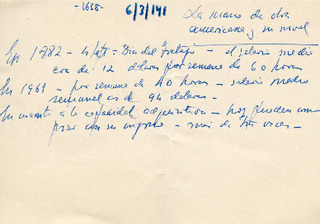 -1655-
6/3/141
La mano de obra
americana y su nivel
En 1882 - - Día del Trabajo - el salario medio
era de 12 dólares por semana de 60 horas
En 1961 - por semana de 40 horas - salario medio
semanal es de 94 dólares -
En cuanto a la capacidad adquisitiva - hoy pueden com
prar con su - más de tres veces -